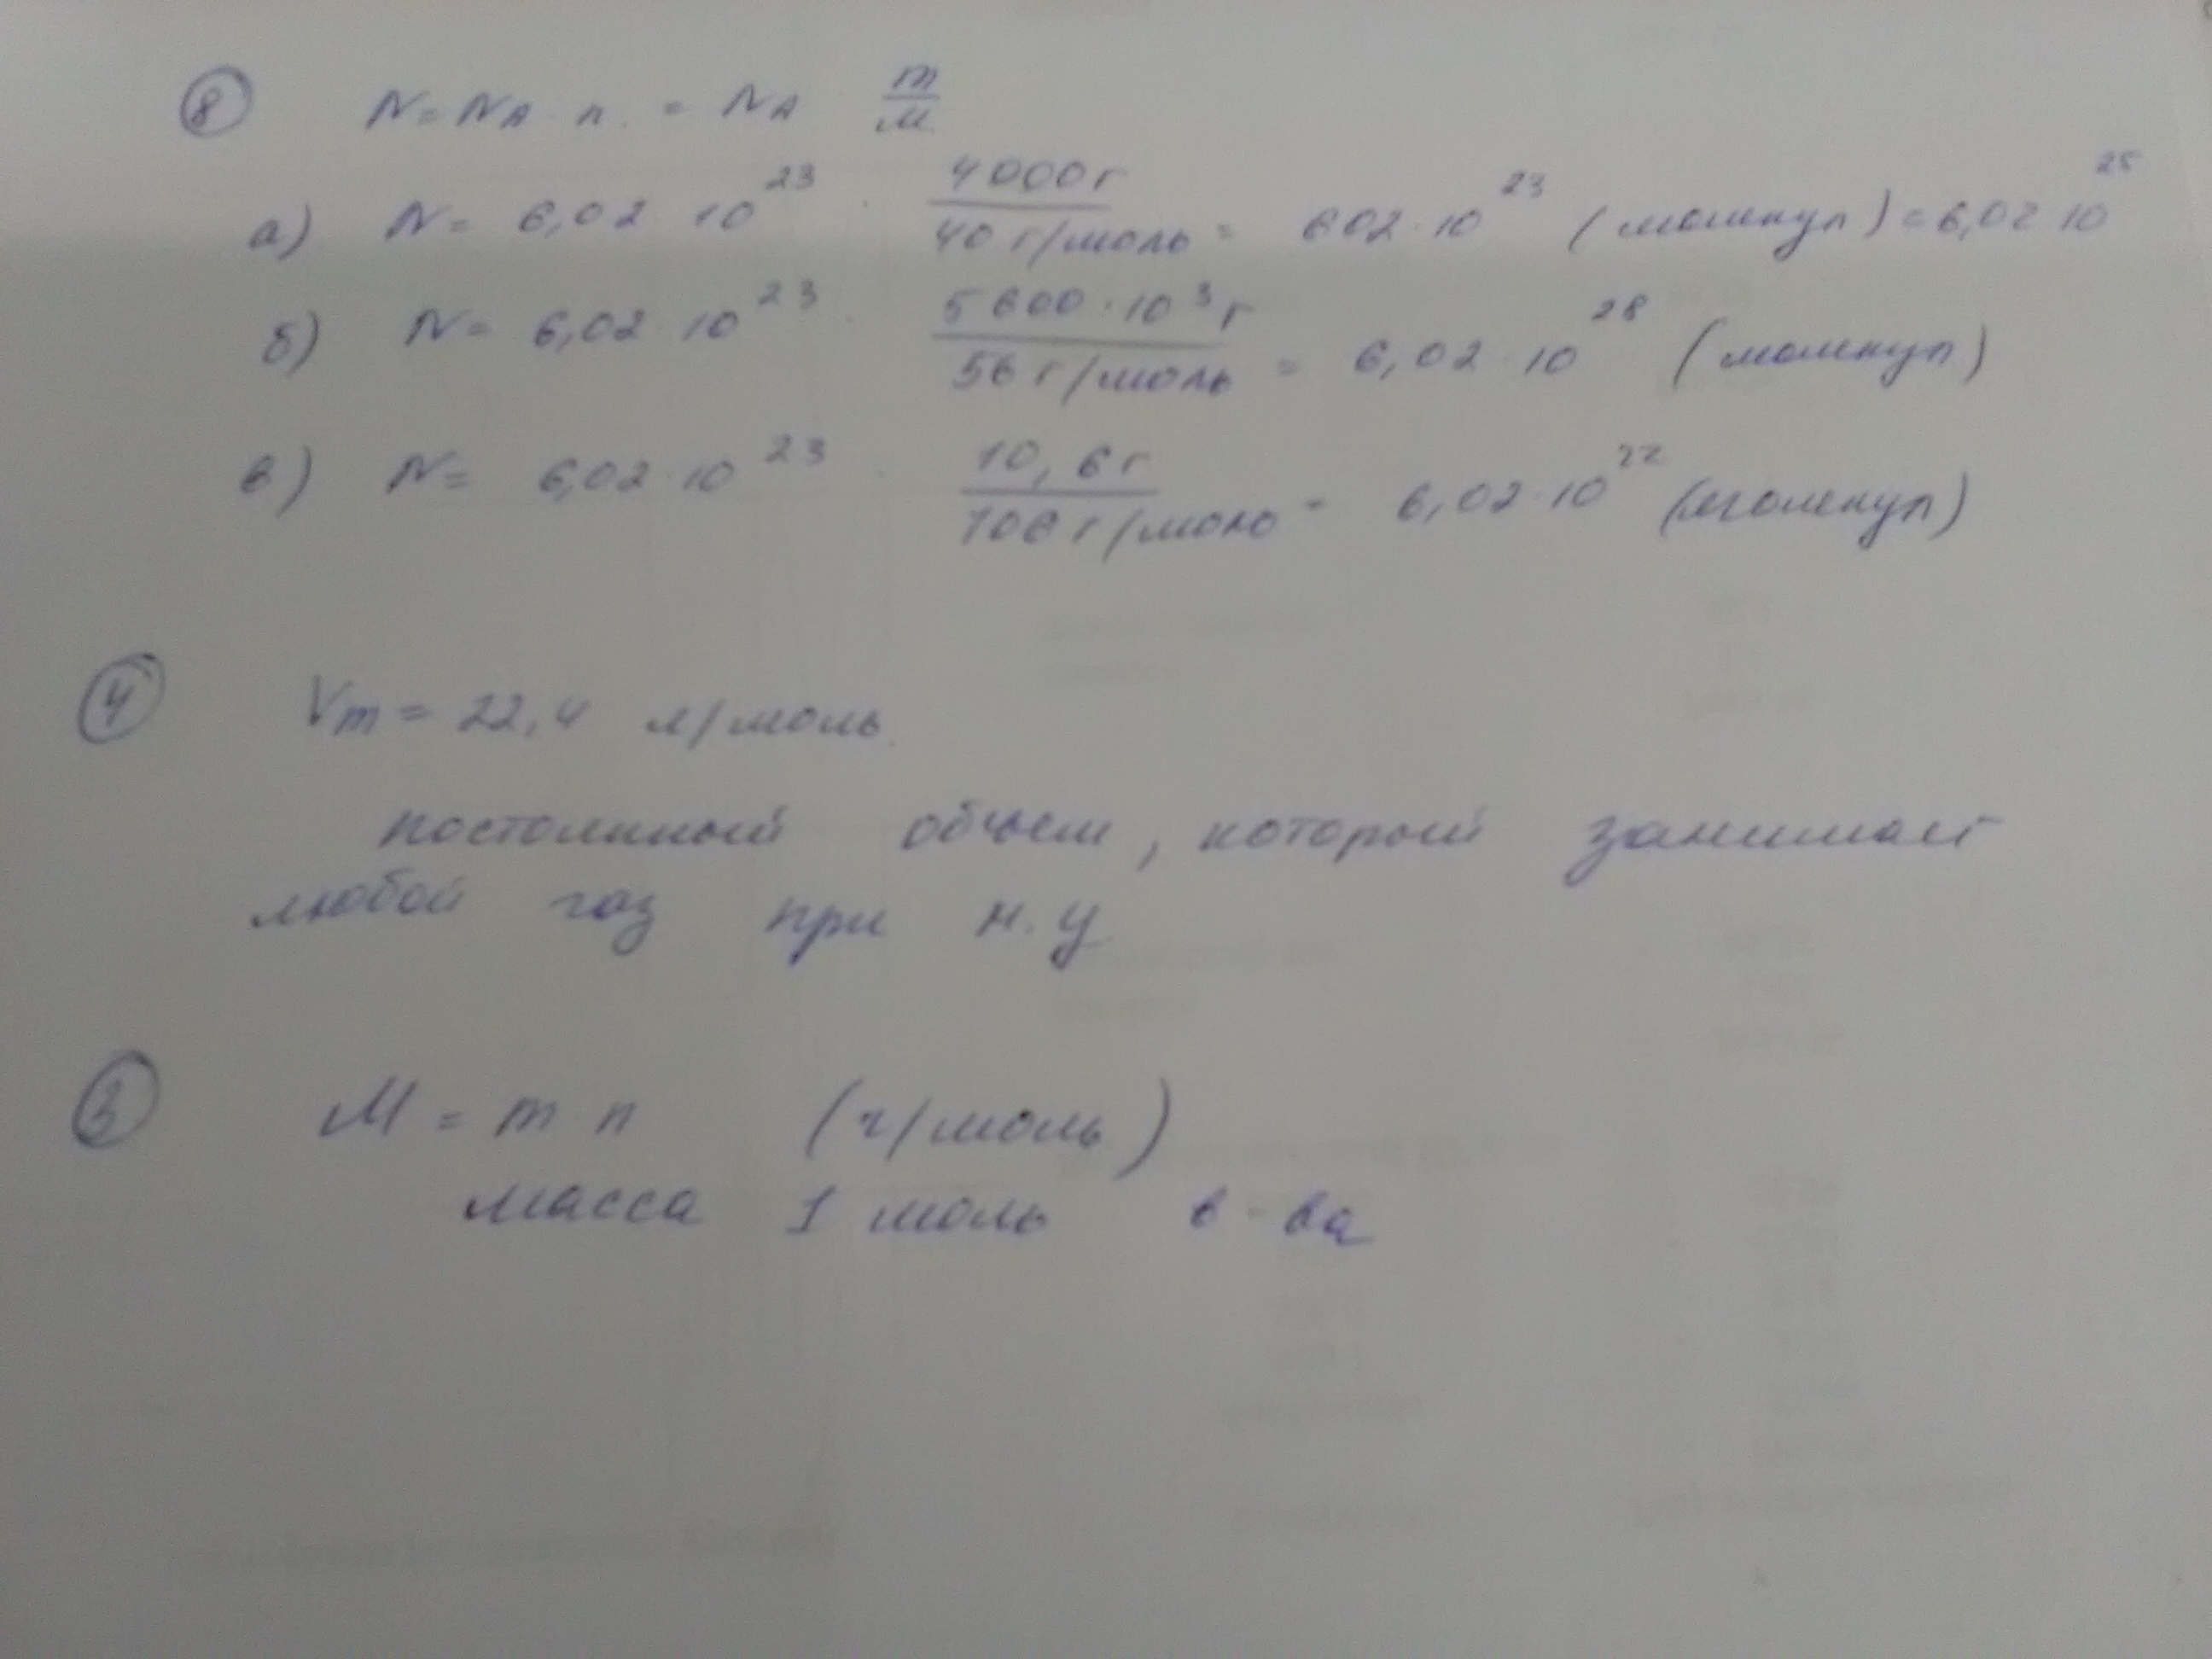 8 N = N_A · n. = N_A · m/M
а) N = 6,02 · 10^23 · 4000 г / 40 г/моль = 602 · 10^23 (молекул) = 6,02 · 10^25
б) N = 6,02 · 10^23 · 5600 · 10^3 г / 56 г/моль = 6,02 · 10^28 (молекул)
в) N = 6,02 · 10^23 · 10,6 г / 106 г/моль = 6,02 · 10^22 (молекул)
4 Vm = 22,4 л/моль.
постоянный объем, который занимает
любой газ при н.у
3 M = m n (г/моль)
масса 1 моль в-ва